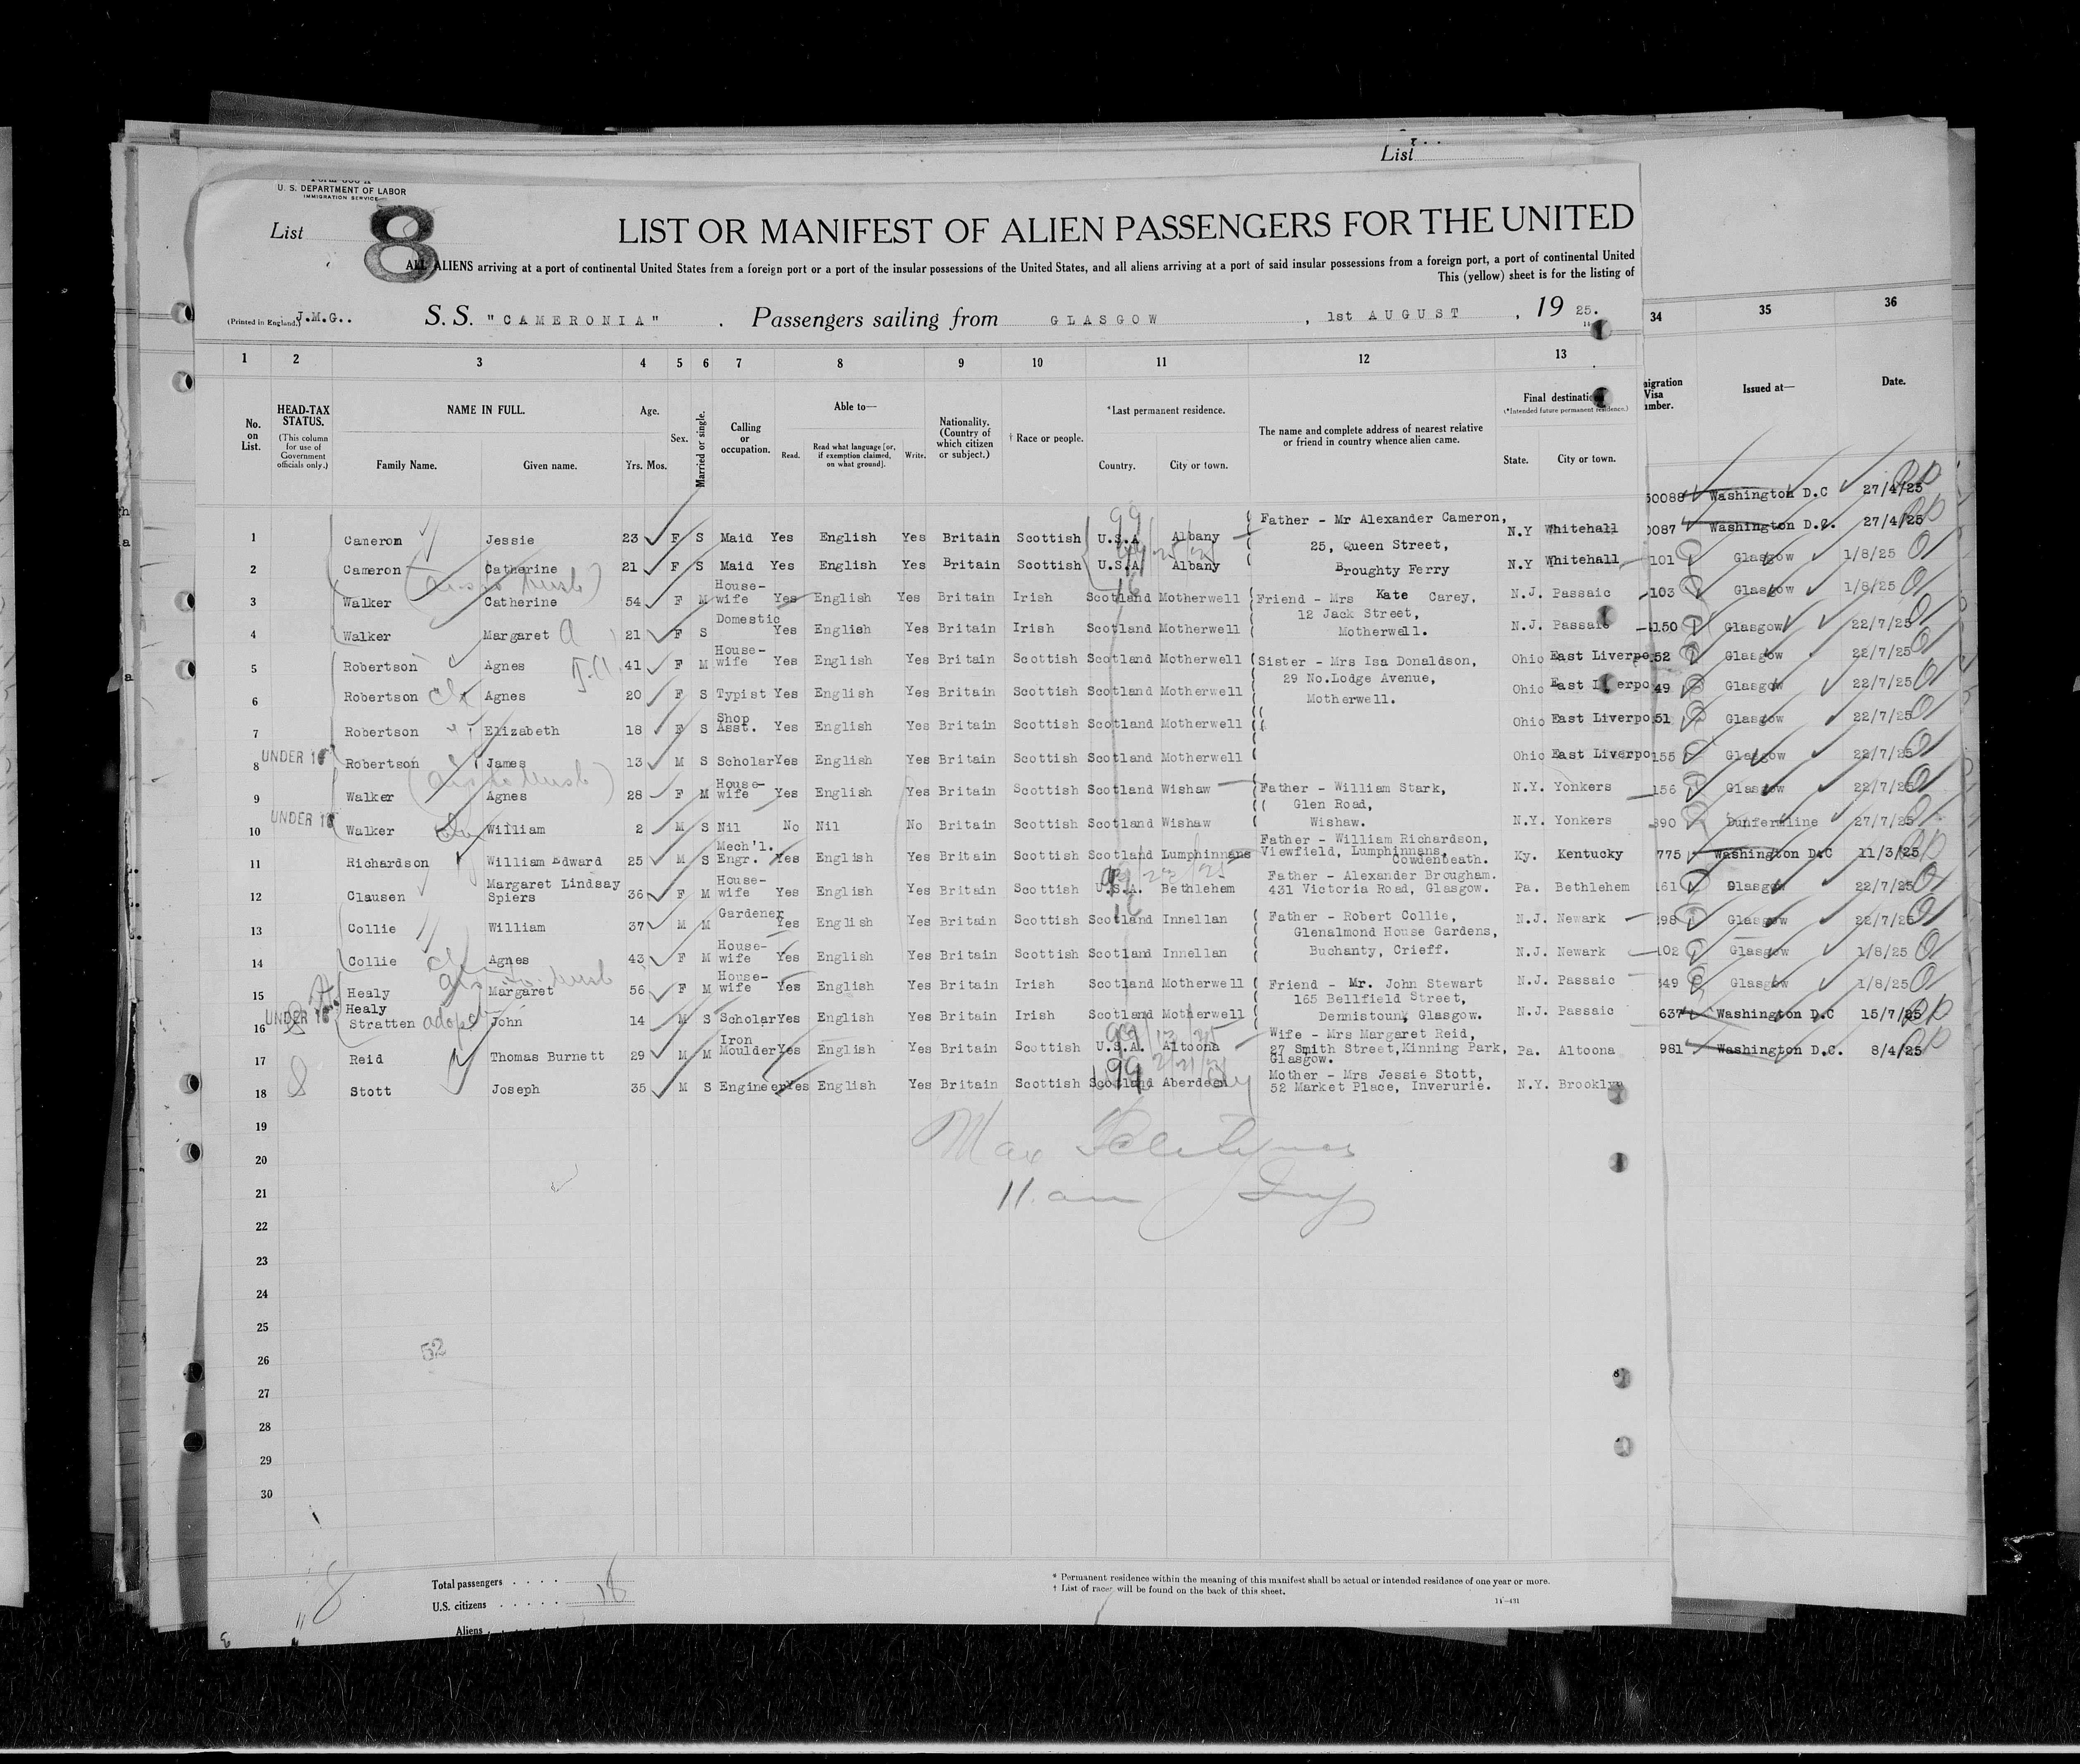 List
U. S. DEPARTMENT OF LABOR
IMMIGRATION SERVICE
List 8
LIST OR MANIFEST OF ALIEN PASSENGERS FOR THE UNITED
ALL ALIENS arriving at a port of continental United States from a foreign port or a port of the insular possessions of the United States, and all aliens arriving at a port of said insular possessions from a foreign port, a port of continental United
This (yellow) sheet is for the listing of
(Printed in England.) J.M.G.. S.S. "CAMERONIA" . Passengers sailing from GLASGOW , 1st AUGUST , 19 25.
1 2 3 4 5 6 7 8 9 10 11 12 13 34 35 36
No. on List. HEAD-TAX STATUS. (This column for use of Government officials only.) NAME IN FULL. Family Name. Given name. Age. Yrs. Mos. Sex. Married or single. Calling or occupation. Able to— Read. Read what language [or, if exemption claimed, on what ground]. Write. Nationality. (Country of which citizen or subject.) † Race or people. *Last permanent residence. Country. City or town. The name and complete address of nearest relative or friend in country whence alien came. Final destination (*Intended future permanent residence.) State. City or town. Visa Issued at— Date.
50088 Washington D.C 27/4/25
0087 Washington D.C. 27/4/25
1 Cameron Jessie 23 F S Maid Yes English Yes Britain Scottish U.S.A Albany Father - Mr Alexander Cameron, 25, Queen Street, N.Y Whitehall
101 Glasgow 1/8/25
2 Cameron Catherine 21 F S Maid Yes English Yes Britain Scottish U.S.A Albany Broughty Ferry N.Y Whitehall
103 Glasgow 1/8/25
3 Walker Catherine 54 F M House-wife Yes English Yes Britain Irish Scotland Motherwell Friend - Mrs Kate Carey, 12 Jack Street, N.J. Passaic
4150 Glasgow 22/7/25
4 Walker Margaret 21 F S Domestic Yes English Yes Britain Irish Scotland Motherwell Motherwell. N.J. Passaic
52 Glasgow 22/7/25
5 Robertson Agnes 41 F M House-wife Yes English Yes Britain Scottish Scotland Motherwell Sister - Mrs Isa Donaldson, 29 No.Lodge Avenue, Ohio East Liverpo
49 Glasgow 22/7/25
6 Robertson Agnes 20 F S Typist Yes English Yes Britain Scottish Scotland Motherwell Motherwell. Ohio East Liverpo
51 Glasgow 22/7/25
7 Robertson Elizabeth 18 F S Shop Asst. Yes English Yes Britain Scottish Scotland Motherwell Ohio East Liverpo
155 Glasgow 22/7/25
UNDER 16
8 Robertson James 13 M S Scholar Yes English Yes Britain Scottish Scotland Motherwell Ohio East Liverpo
156 Glasgow 22/7/25
9 Walker Agnes 28 F M House-wife Yes English Yes Britain Scottish Scotland Wishaw Father - William Stark, Glen Road, N.Y. Yonkers
390 Dunfermline 27/7/25
UNDER 16
10 Walker William 2 M S Nil No Nil No Britain Scottish Scotland Wishaw Wishaw. N.Y. Yonkers
775 Washington D.C 11/3/25
11 Richardson William Edward 25 M S Mech'l. Engr. Yes English Yes Britain Scottish Scotland Lumphinnans Father - William Richardson, Viewfield, Lumphinnans, Cowdenbeath. Ky. Kentucky
161 Glasgow 22/7/25
12 Clausen Margaret Lindsay Spiers 36 F M House-wife Yes English Yes Britain Scottish U.S.A. Bethlehem Father - Alexander Brougham. 431 Victoria Road, Glasgow. Pa. Bethlehem
198 Glasgow 22/7/25
13 Collie William 37 M M Gardener Yes English Yes Britain Scottish Scotland Innellan Father - Robert Collie, Glenalmond House Gardens, N.J. Newark
102 Glasgow 1/8/25
14 Collie Agnes 43 F M House-wife Yes English Yes Britain Scottish Scotland Innellan Buchanty, Crieff. N.J. Newark
349 Glasgow 1/8/25
15 Healy Margaret 56 F M House-wife Yes English Yes Britain Irish Scotland Motherwell Friend - Mr. John Stewart 165 Bellfield Street, N.J. Passaic
637 Washington D.C 15/7/25
UNDER 16
16 Healy Stratten adopted John 14 M S Scholar Yes English Yes Britain Irish Scotland Motherwell Dennistoun, Glasgow. N.J. Passaic
981 Washington D.C. 8/4/25
17 Reid Thomas Burnett 29 M M Iron Moulder Yes English Yes Britain Scottish U.S.A. Altoona Wife - Mrs Margaret Reid, 27 Smith Street, Kinning Park, Glasgow. Pa. Altoona
18 Stott Joseph 35 M S Engineer Yes English Yes Britain Scottish Scotland Aberdeen Mother - Mrs Jessie Stott, 52 Market Place, Inverurie. N.Y. Brooklyn
19
20 Max
21 11 am Insp
22
23
24
25
26 52
27
28
29
30
Total passengers . . . . 18
U.S. citizens . . . . .
Aliens
* Permanent residence within the meaning of this manifest shall be actual or intended residence of one year or more.
† List of races will be found on the back of this sheet.